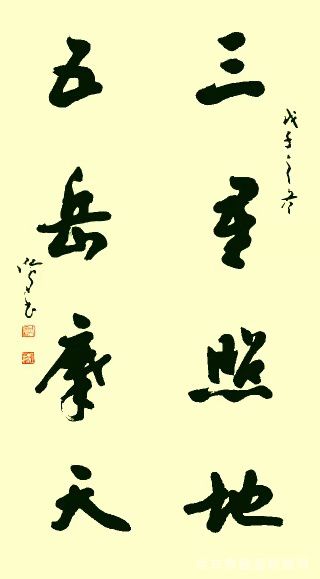 三星照地
戊子之冬
五岳摩天